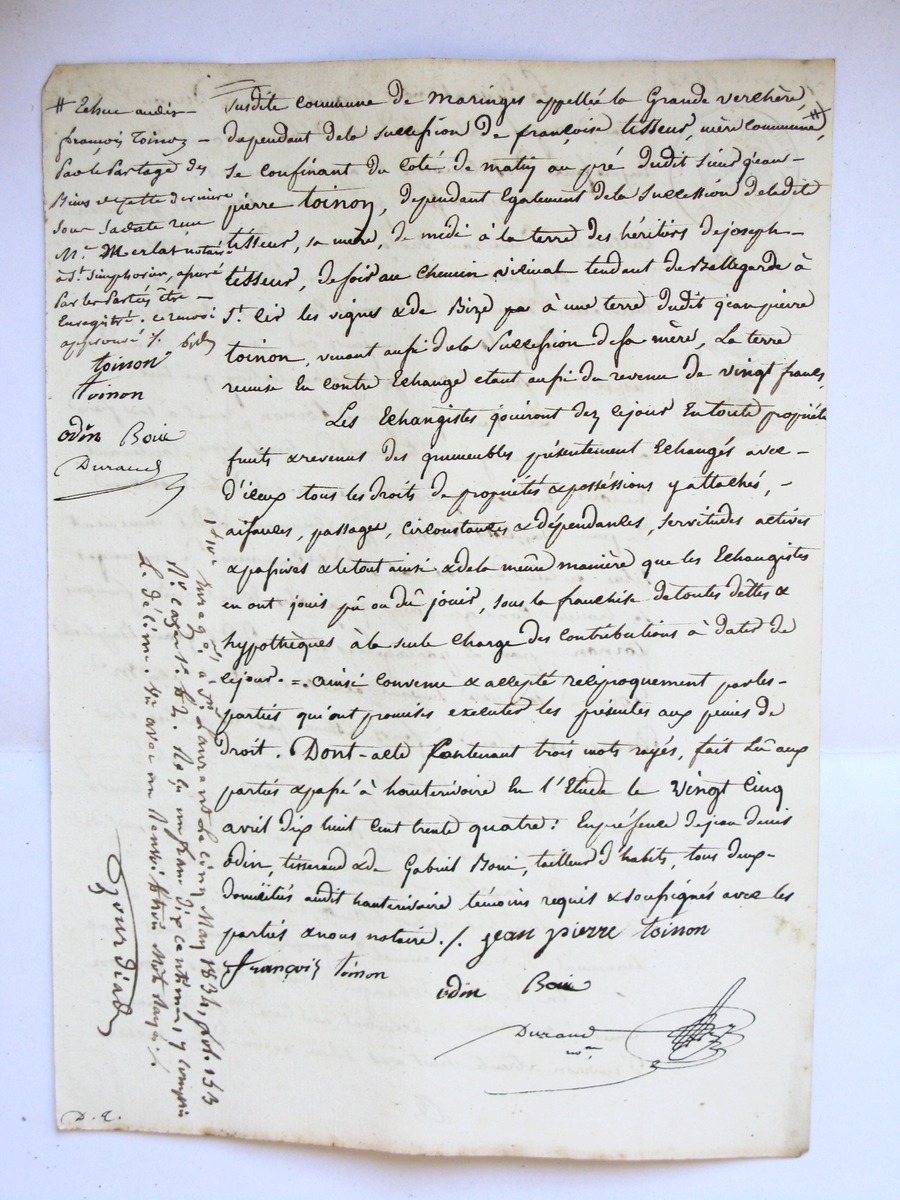 susdite commune de maringes appellée la Grande verchère,
dependant dela succession de françoise tisseur, mère commune, #
se confinant du coté de matin au pré dudit sieur jean-
pierre toinon, dependant Egalement dela succession deladite
tisseur, sa mère, de midi à la terre des héritiers de joseph-
tisseur, de soir au chemin vicinal tendant de Bellegarde à
St. Cir les vignes & de Bize par à une terre dudit jean pierre
toinon, venant aussi dela succession de sa mère, La terre
remise En contre Echange etant aussi du revenu de vingt francs,
Les Echangistes jouiront dez cejour Entoute propriété
fruits & revenus des jmmeubles présentement Echangés avec-
d'iceux tous les droits de propriétés & posséssions y attachés, -
aisances, passages, circonstances & dépendances, servitudes actives
& passives & letout ainsi & dela même manière que les Echangistes
en ont jouis pû ou dû jouir, sous la franchise detoutes dettes &
hypothèques à la seule charge des contributions à dater de
cejour. = ainsi convenu & accepté réciproquement par les-
parties qui ont promises executer les présentes aux peines de
Droit. Dont-acte Contenant trois mots rayés, fait Lû aux
parties & passé à hauterivoire En l'Etude le vingt Cinq
avril dix huit cent trente quatre: En présence de jean denis
odin, tisserand & de Gabriel Boui, tailleur d'habits, tous deux-
domiciliés audit hauterivoire témoins requis & soussignés avec les
parties & nous notaire. /. jean pierre toinon
françois toinon
odin Boui
Durand
nre
# Echue audit-
françois Toinon -
Par le Partage des
Biens de cette derniere
sous sa date reçu
Me. Merlat notaire
à St. Simphorien, assuré
Par les Parties être -
Enregistré. ce renvoi
approuvé /.
toinon
toinon
odin Boui
Durand
Enregé. à St. Laurent le cinq May 1834, fol. 153
Ro. cases Reçu un franc dix centimes, y compris
Le décime. Vu avec un Renvoi & trois Mots Rayés /.
D. E.